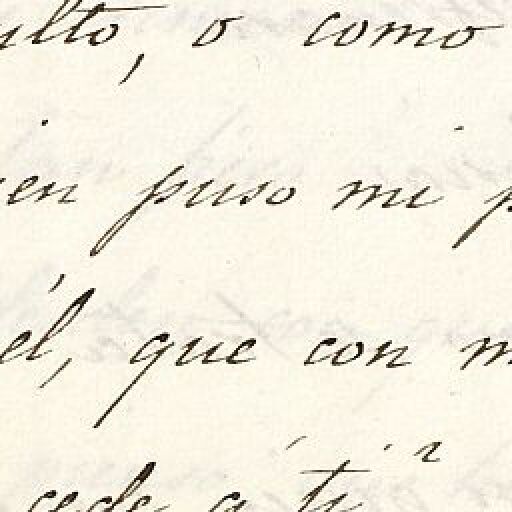 ulto, o como
en puso mi p
él, que con m
cede á tí